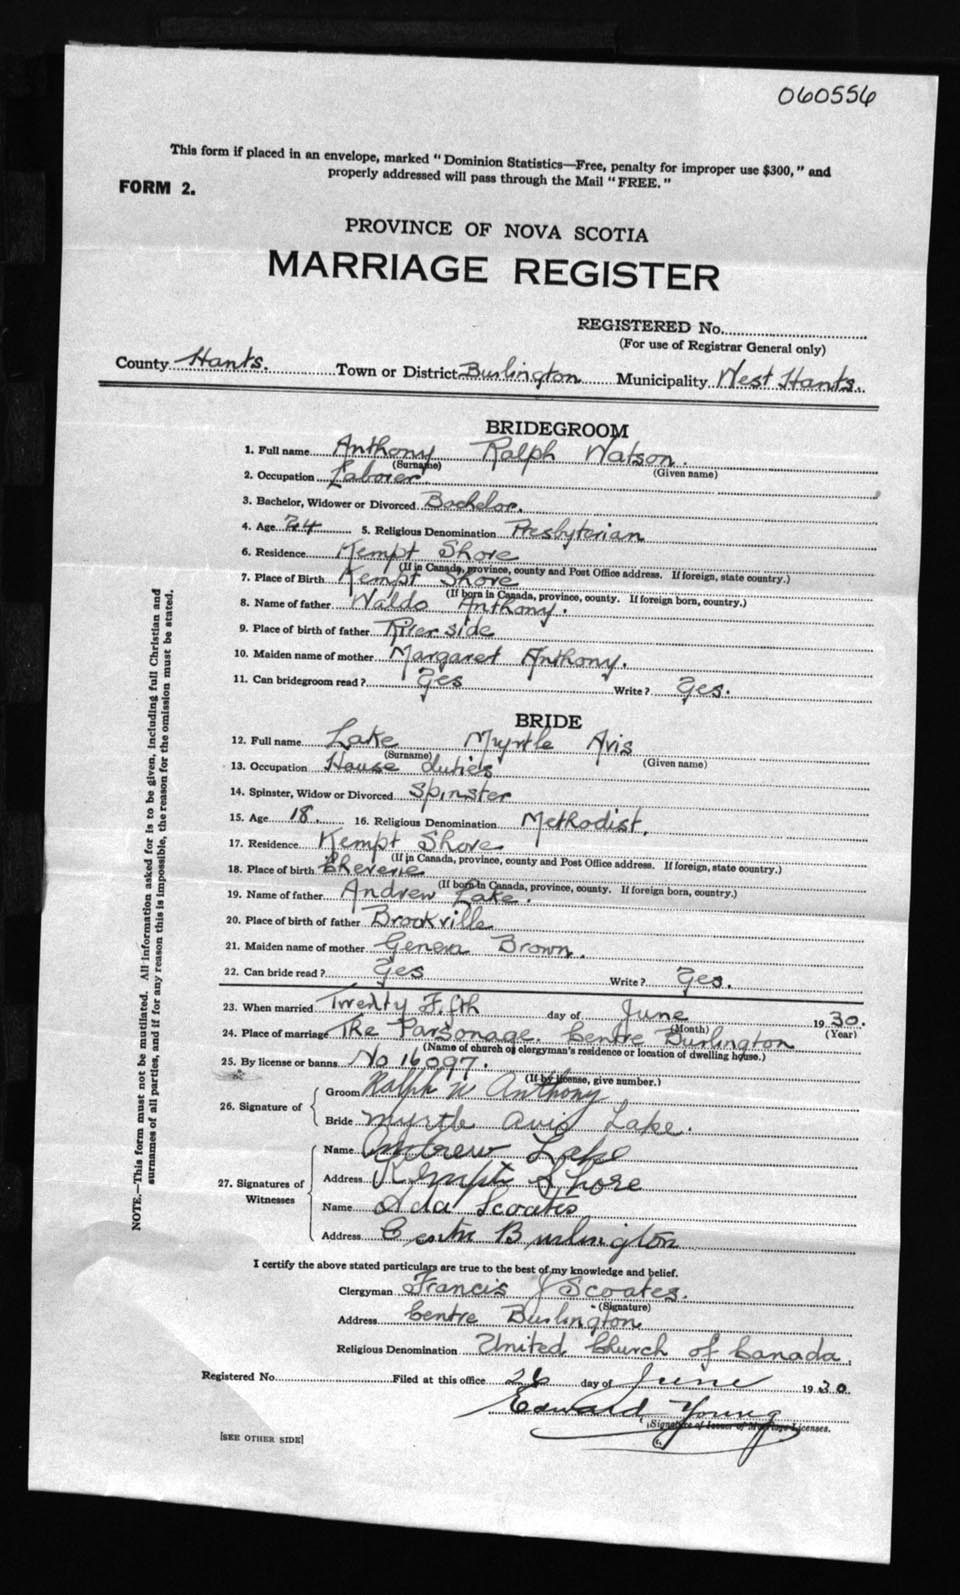 060556
This form if placed in an envelope, marked "Dominion Statistics—Free, penalty for improper use $300," and
properly addressed will pass through the Mail "FREE."
FORM 2.
PROVINCE OF NOVA SCOTIA
MARRIAGE REGISTER
REGISTERED No.
(For use of Registrar General only)
County Hants. Town or District Burlington Municipality West Hants.
BRIDEGROOM
1. Full name Anthony Ralph Watson.
(Surname) (Given name)
2. Occupation Laborer.
3. Bachelor, Widower or Divorced Bachelor.
4. Age 24 5. Religious Denomination Presbyterian
6. Residence Kempt Shore
(If in Canada, province, county and Post Office address. If foreign, state country.)
7. Place of Birth Kempt Shore
(If born in Canada, province, county. If foreign born, country.)
8. Name of father Waldo Anthony.
9. Place of birth of father River side
10. Maiden name of mother Margaret Anthony.
11. Can bridegroom read? Yes Write? Yes.
BRIDE
12. Full name Lake Myrtle Avis
(Surname) (Given name)
13. Occupation House duties
14. Spinster, Widow or Divorced Spinster
15. Age 18. 16. Religious Denomination Methodist.
17. Residence Kempt Shore
(If in Canada, province, county and Post Office address. If foreign, state country.)
18. Place of birth Cheverie
(If born in Canada, province, county. If foreign born, country.)
19. Name of father Andrew Lake.
20. Place of birth of father Brookville
21. Maiden name of mother Geneva Brown.
22. Can bride read? Yes Write? Yes.
23. When married Twenty Fifth day of June 1930.
(Month) (Year)
24. Place of marriage The Parsonage. Centre Burlington
(Name of church or clergyman's residence or location of dwelling house.)
25. By license or banns No 16097.
(If by license, give number.)
26. Signature of
Groom Ralph W Anthony
Bride Myrtle Avis Lake.
27. Signatures of Witnesses
Name Andrew Lake
Address Kempt Shore
Name Ada Scoates
Address Centre Burlington
I certify the above stated particulars are true to the best of my knowledge and belief.
Clergyman Francis J Scoates.
(Signature)
Address Centre Burlington
Religious Denomination United Church of Canada.
Registered No. Filed at this office 26 day of June 1930.
Edward Young
(Signature of Issuer of Marriage Licenses.
[SEE OTHER SIDE]
NOTE.—This form must not be mutilated. All information asked for is to be given, including full Christian and
surnames of all parties, and if for any reason this is impossible, the reason for the omission must be stated.